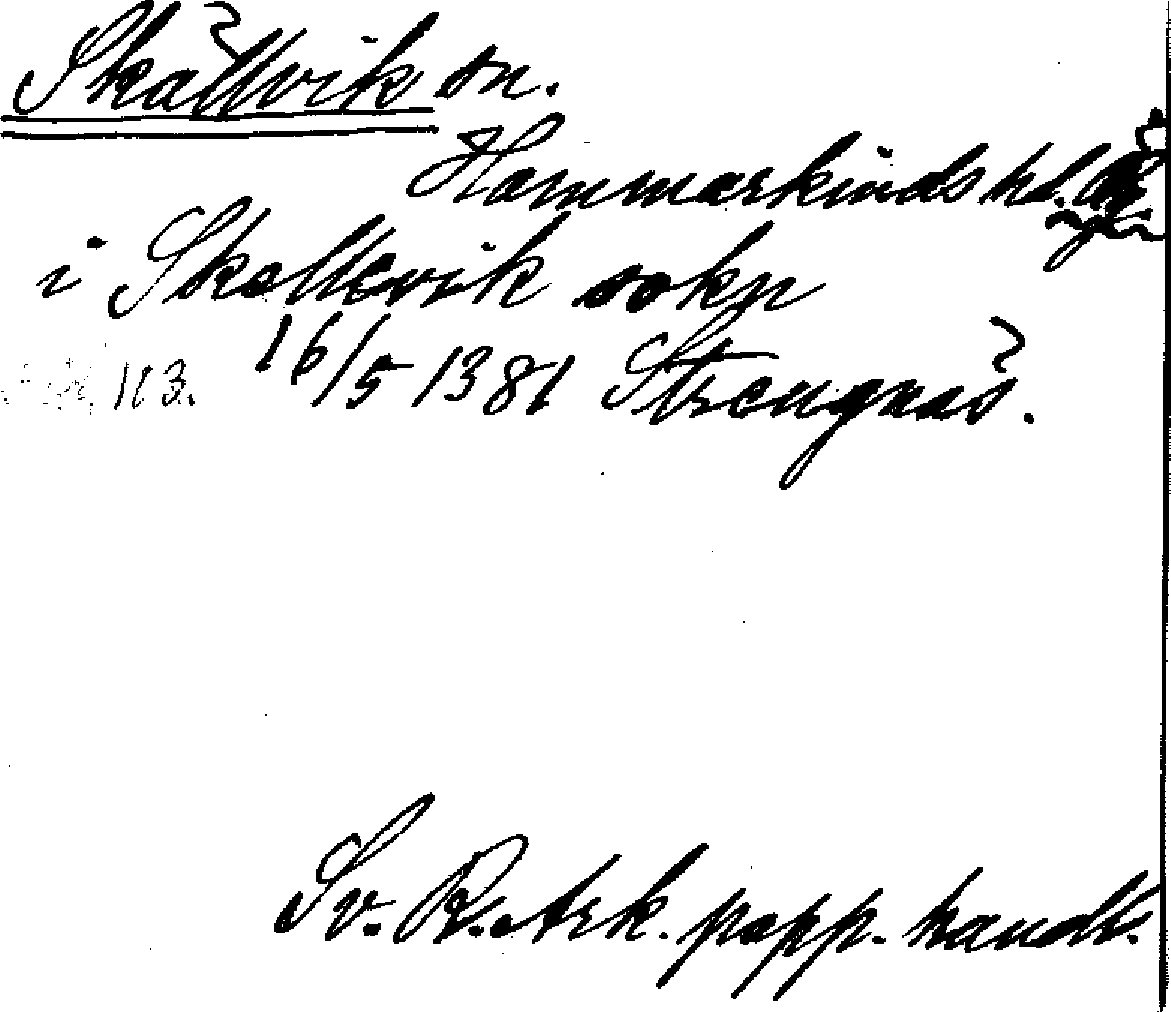 Skällvik sn.
Hammarkinds hd. Ög.
i Skellevik sokn
16/5 1381 Strengnäs.
113.
Sv. R. Ark. papp. handl.